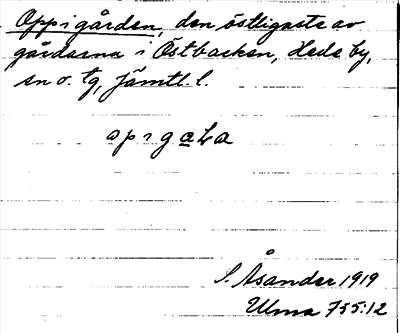 Oppigården, den östligaste av
gårdarna i Östbacken, Hede by,
sn o. tg, Jämtl. l.
S. Åsander 1919
Ulma 755:12